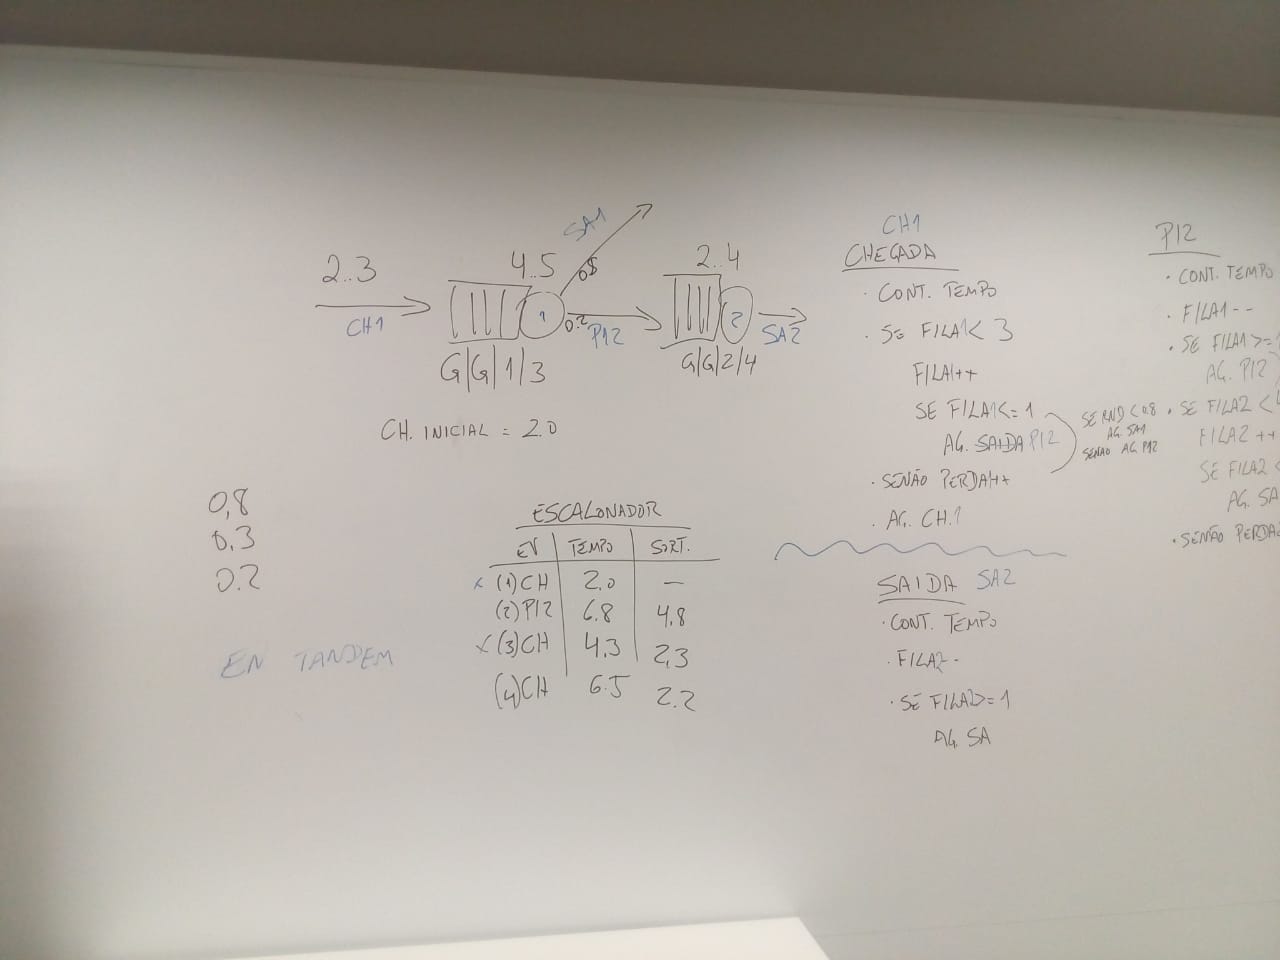 2..3
CH1
4..5
SA1
0.8
1
0.2
P12
G/G/1/3
2..4
2
SA2
G/G/2/4
CH. INICIAL = 2.0
0,8
0.3
0.2
EN TANDEM
ESCALONADOR
EV TEMPO SORT.
x (1)CH 2.0 —
(2)P12 6.8 4.8
x (3)CH 4.3 2,3
(4)CH 6.5 2.2
CH1
CHEGADA
· CONT. TEMPO
· SE FILA1< 3
FILA1++
SE FILA1<= 1
AG. SAIDA P12
· SENÃO PERDA++
· AG. CH.1
SE RND < 0.8
AG. SA1
SENAO AG. P12
SAIDA SA2
· CONT. TEMPO
· FILA2--
· SE FILA2>= 1
AG. SA
P12
· CONT. TEMPO
· FILA1--
· SE FILA1>=
AG. P12
· SE FILA2 <
FILA2 ++
SE FILA2 <
AG. SA
· SENÃO PERDA2